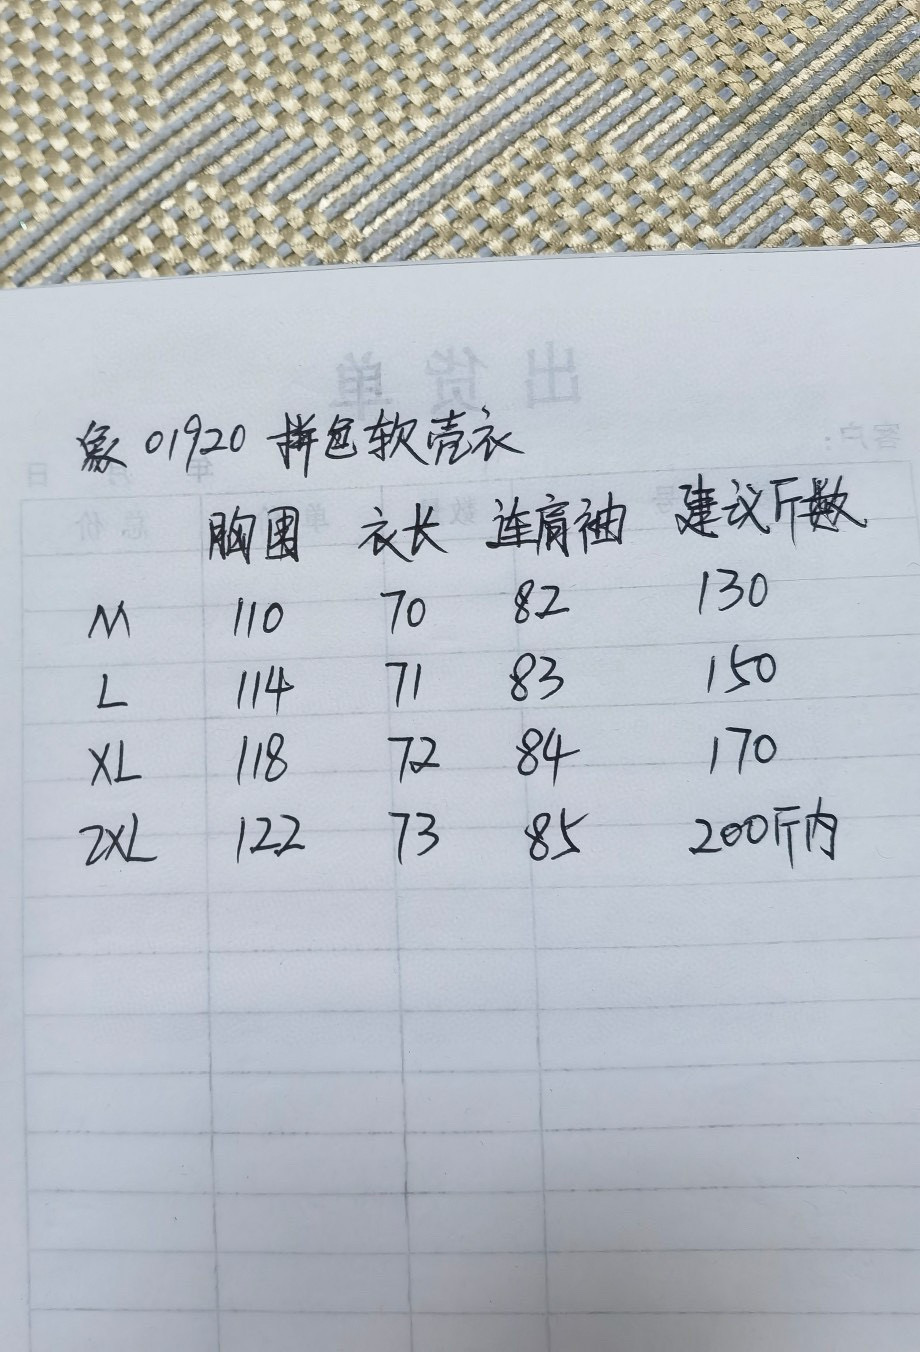 出货单
客户:
年 月 日
号 数量 单 总价
象 01920 拼色软壳衣
胸围 衣长 连肩袖 建议斤数
M 110 70 82 130
L 114 71 83 150
XL 118 72 84 170
2XL 122 73 85 200斤内